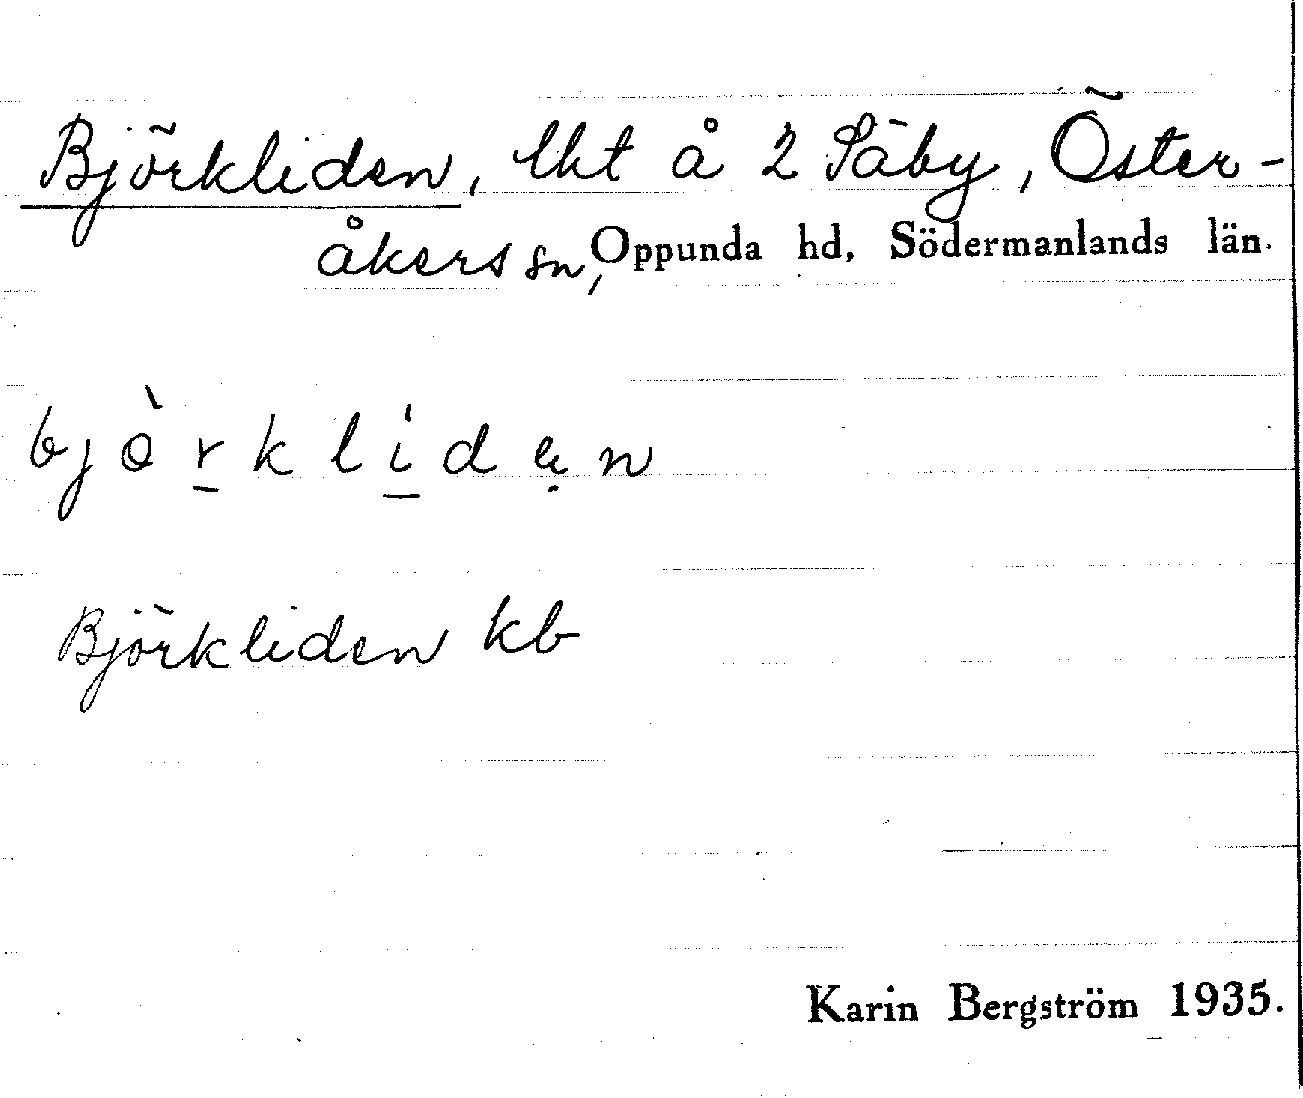 Björkliden, lht å 2 Säby, Öster-
åkers sn, Oppunda hd, Södermanlands län.
bjö̀r̲klí̲dẹn
Björkliden kb
Karin Bergström 1935.